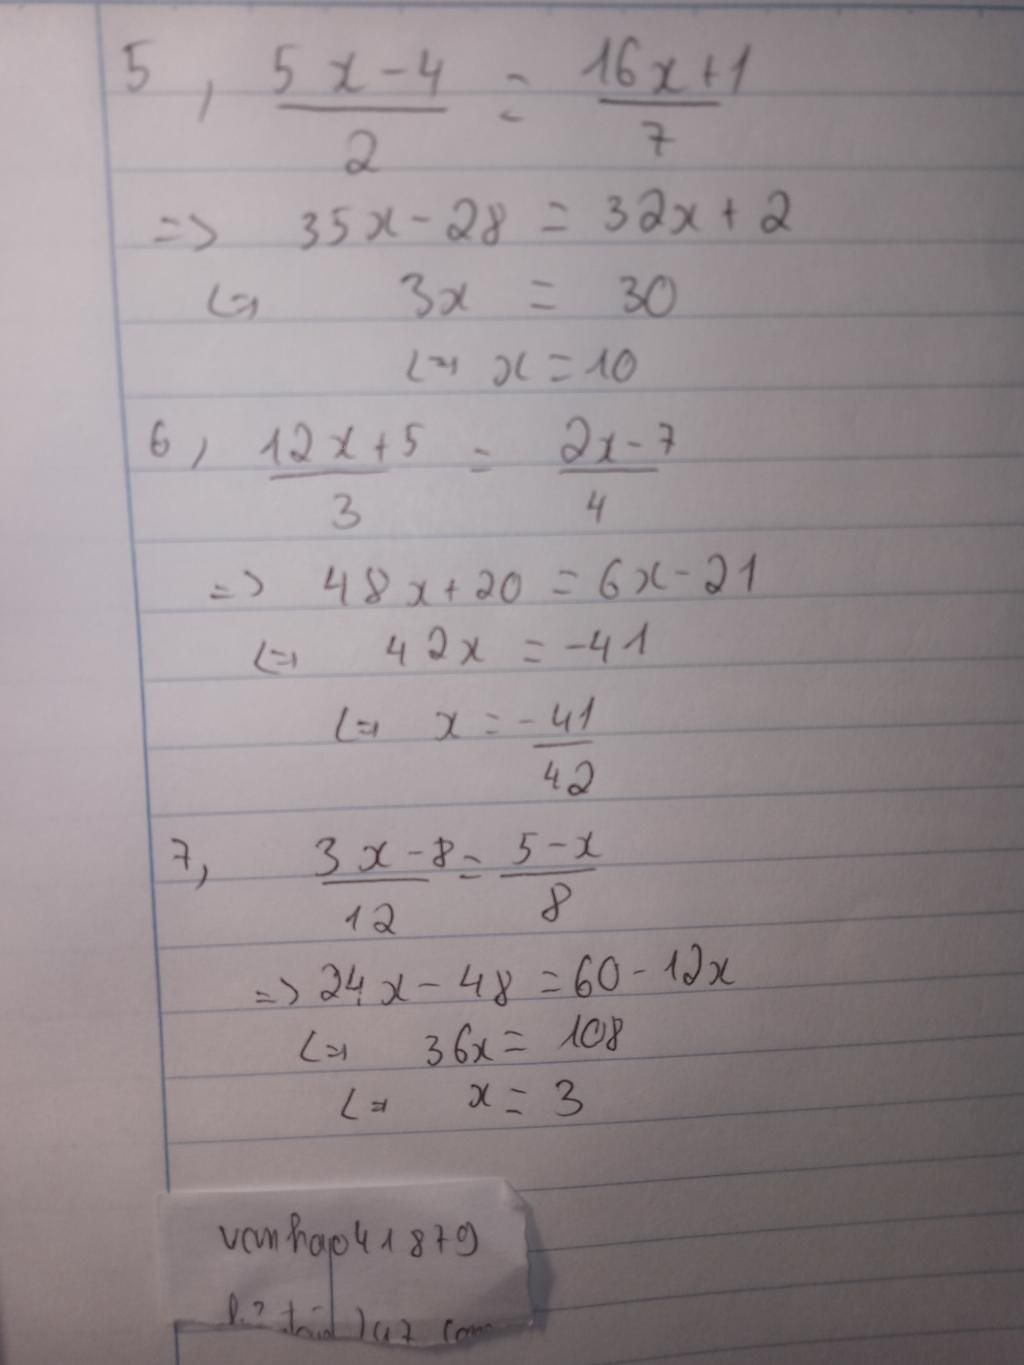 5, (5x-4)/2 = (16x+1)/7
=> 35x-28 = 32x+2
<=> 3x = 30
<=> x=10
6, (12x+5)/3 = (2x-7)/4
=> 48x+20 = 6x-21
<=> 42x = -41
<=> x = -41/42
7, (3x-8)/12 = (5-x)/8
=> 24x-48 = 60-12x
<=> 36x = 108
<=> x = 3
vanhap41879